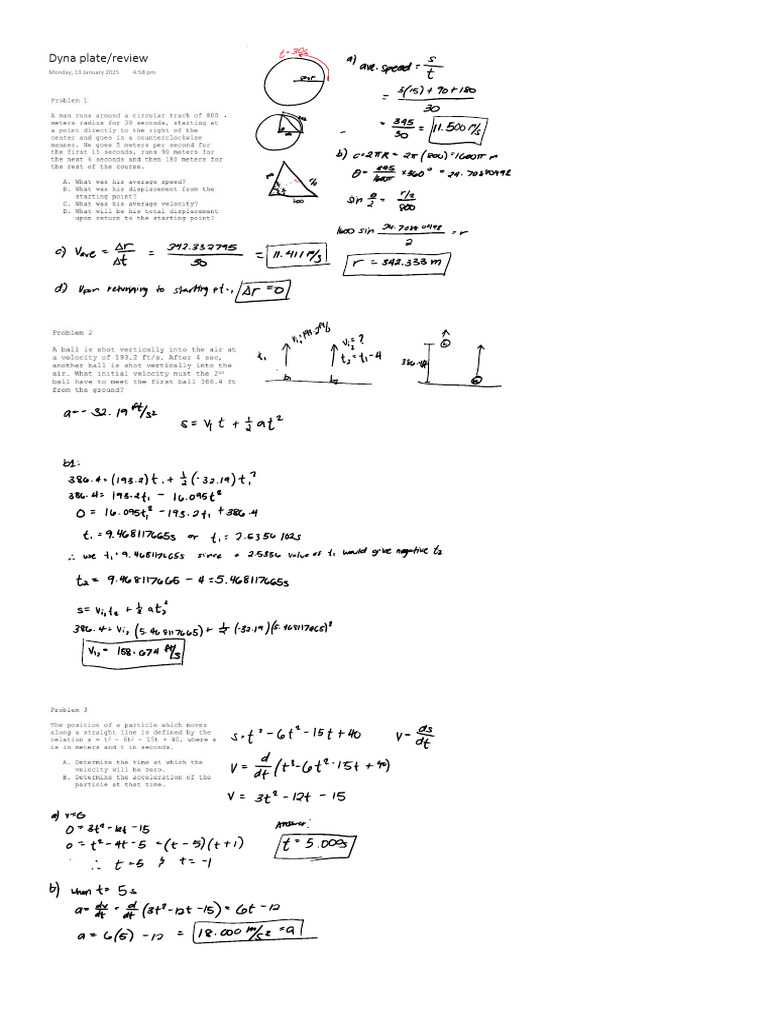 Dyna plate/review
Monday, 13 January 2025 4:58 pm
Problem 1
A man runs around a circular track of 800
meters radius for 30 seconds, starting at
a point directly to the right of the
center and goes in a counterclockwise
manner. He goes 5 meters per second for
the first 15 seconds, runs 90 meters for
the next 6 seconds and then 180 meters for
the rest of the course.
A. What was his average speed?
B. What was his displacement from the
starting point?
C. What was his average velocity?
D. What will be his total displacement
upon return to the starting point?
t = 30s
800
a) ave. speed = s/t
= 5(15) + 90 + 180 / 30
= 345/30 = 11.500 m/s
b) c = 2πR = 2π(800) = 1600π m
θ = 345/1600π × 360° = 24.70890498
sin θ/2 = r/2 / 800
1600 sin 24.70890498/2 = r
r = 342.333 m
c) Vave = Δr/Δt = 342.332795/30 = 11.411 m/s
d) Upon returning to starting pt., Δr = 0
Problem 2
A ball is shot vertically into the air at
a velocity of 193.2 ft/s. After 4 sec,
another ball is shot vertically into the
air. What initial velocity must the 2nd
ball have to meet the first ball 386.4 ft
from the ground?
t₁ Vi₁=193.2ft/s b₁
Vi₂ = ? t₂ = t₁-4 b₂
386.4ft
a = - 32.19 ft/s²
s = V₁t + ½ at²
b1:
386.4 = (193.2)t₁ + ½(-32.19)t₁²
386.4 = 193.2t₁ - 16.095t²
0 = 16.095t₁² - 193.2t₁ + 386.4
t₁ = 9.468117665s or t₁ = 2.5356102s
∴ use t₁ = 9.468117665s since a 2.5356 value of t₁ would give negative t₂
t₂ = 9.468117665 - 4 = 5.468117665s
s = Vi₂t₂ + ½ at₂²
386.4 = Vi₂ (5.468117665) + ½ (-32.19)(5.468117665)²
Vi₂ = 158.674 ft/s
Problem 3
The position of a particle which moves
along a straight line is defined by the
relation s = t³ - 6t² - 15t + 40, where s
is in meters and t in seconds.
A. Determine the time at which the
velocity will be zero.
B. Determine the acceleration of the
particle at that time.
s = t³ - 6t² - 15t + 40 V = ds/dt
V = d/dt (t³ - 6t² - 15t + 40)
V = 3t² - 12t - 15
a) v=0
0 = 3t² - 12t - 15
0 = t² - 4t - 5 = (t - 5)(t + 1)
∴ t = 5 & t = -1
Answer:
t = 5.000s
b) when t = 5 s
a = dv/dt = d/dt (3t² - 12t - 15) = 6t - 12
a = 6(5) - 12 = 18.000 m/s² = a